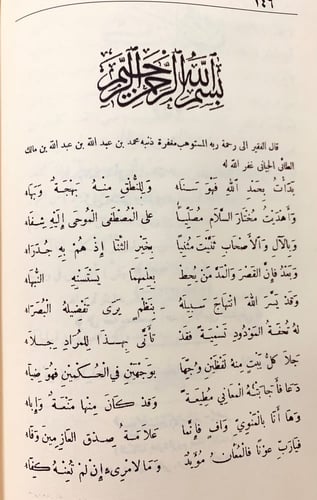 ١٤٦
بسم الله الرحمن الرحيم
قال الفقير الى رحمة ربه المستوهب مغفرة ذنبه محمد بن عبد الله بن عبد الله بن مالك
الطائي الجياني غفر الله له
بَدَأْتُ بِحَمْدِ اللهِ فَهْوَ سَنَاءُ وَلِلنُّطْقِ مِنْهُ بَهْجَةٌ وَبَهَاءُ
وَأَهْدَيْتُ مُخْتَارَ السَّلَامِ مُصَلِّيًا عَلَى الْمُصْطَفَى الْمُوحَى إِلَيْهِ شِفَاءُ
وَبِالْآلِ وَالْأَصْحَابِ ثَلَّثْتُ مُثْنِيًا بِخَيْرِ الثَّنَا إِذْ هُمْ بِهِ جُدَرَاءُ
وَبَعْدُ فَإِنَّ الْقَصْرَ وَالْمَدَّ مَنْ يُحِطْ بِعِلْمِهِمَا يَسْتَسْنِهِ النُّبَهَاءُ
وَقَدْ يَسَّرَ اللهُ انْتِهَاجَ سَبِيلِهِ بِنَظْمٍ يَرَى تَفْضِيلَهُ الْبُصَرَاءُ
لَهُ تُحْفَةُ الْمَوْدُودِ تَسْمِيَةٌ فَقَدْ تَأَتَّى بِهَذَا لِلْمُرَادِ جَلَاءُ
جَلَا كُلُّ بَيْتٍ مِنْهُ لَفْظَيْنِ وُجِّهَا بِوَجْهَيْنِ فِي الْحُكْمَيْنِ فَهْوَ ضِيَاءُ
دَعَا فَأَجَابَتْهُ الْمَعَانِي مُطِيعَةً وَقَدْ كَانَ مِنْهَا مَنْعَةٌ وَإِبَاءُ
وَهَا أَنَا بِالْمَنْوِيِّ وَافٍ فَإِنَّمَا عَلَامَةُ صِدْقِ الْعَازِمِينَ وَفَاءُ
فَيَارَبِّ عَوْنًا فَالْمُعَانُ مُؤَيَّدٌ وَمَا لِامْرِىءٍ إِنْ لَمْ تُعِنْهُ كِفَاءُ